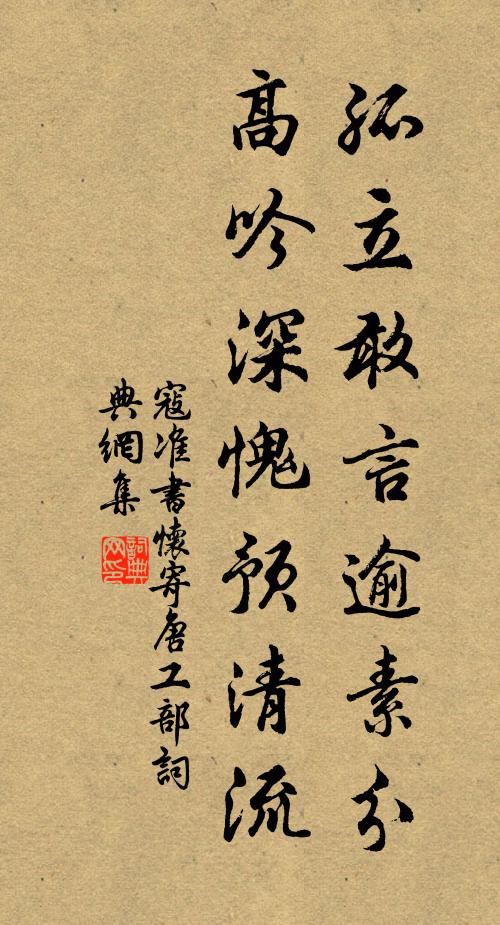 孤立敢言逾素分
高吟深愧预清流
寇准書懷寄唐工部詞
典網集
詞典
网印